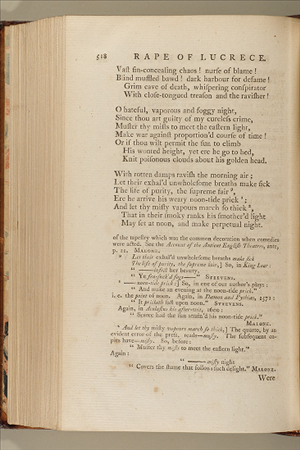 528 RAPE OF LUCRECE.
Vast sin-concealing chaos! nurse of blame!
Blind muffled bawd! dark harbour for defame!
Grim cave of death, whispering conspirator
With close-tongued treason and the ravisher!
O hateful, vaporous and foggy night,
Since thou art guilty of my cureless crime,
Muster thy mists to meet the eastern light,
Make war against proportion'd course of time!
Or if thou wilt permit the sun to climb
His wonted height, yet ere he go to bed,
Knit poisonous clouds about his golden head.
With rotten damps ravish the morning air;
Let their exhal'd unwholesome breaths make sick
The life of purity, the supreme fair,
Ere he arrive his weary noon-tide prick;
And let thy misty vapours march so thick,
That in their smoky ranks his smother'd light
May set at noon, and make perpetual night.
of the tapestry which was the common decoration when comedies
were acted. See the Account of the Ancient English Theatres, ante,
p. 21. MALONE.
Let their exhal'd unwholesome breaths make sick
The life of purity, the supreme fair,] So, in King Lear:
"—infect her beauty,
"Ye fen-suck'd fogs—" STEEVENS.
— noon-tide prick;] So, in one of our author's plays:
"And make an evening at the noon-tide prick."
i. e. the point of noon. Again, in Damon and Pythias, 1571:
"It pricketh fast upon noon." STEEVENS.
Again, in Acolastus his after-witte, then:
"Scarce had the sun attain'd his noon-tide prick."
MALONE.
And let thy misty vapours march so thick,] The quarto, by an
evident error of the press, reads—musty. The subsequent copies
have—misty. So, before:
"Muster thy mists to meet the eastern light."
Again:
"— misty night
"Covers the shame that follows such delight." MALONE.
Were